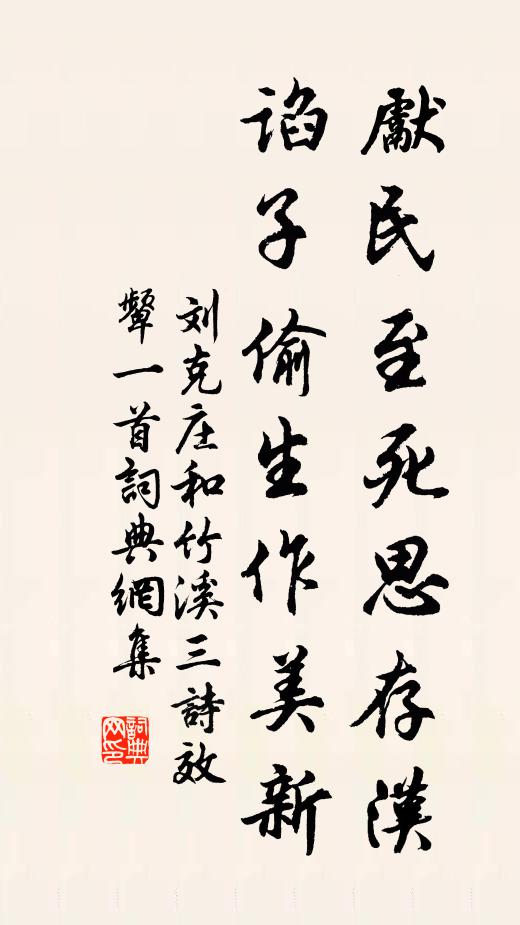 獻民至死思存漢
谄子偷生作美新
刘克庄和竹溪三詩效
顰一首詞典網集
詞典网印